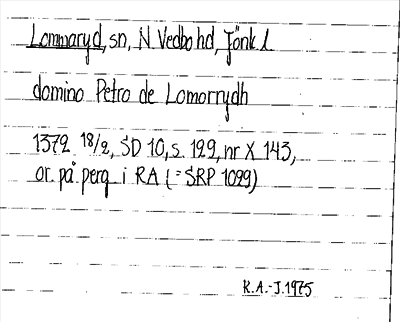 Lommaryd, sn, N. Vedbo hd, Jönk l.
domino Petro de Lomorrydh
1372 18/2, SD 10, s. 129, nr X 143,
or. på perg. i RA (=SRP 1099)
K.A.-J. 1975